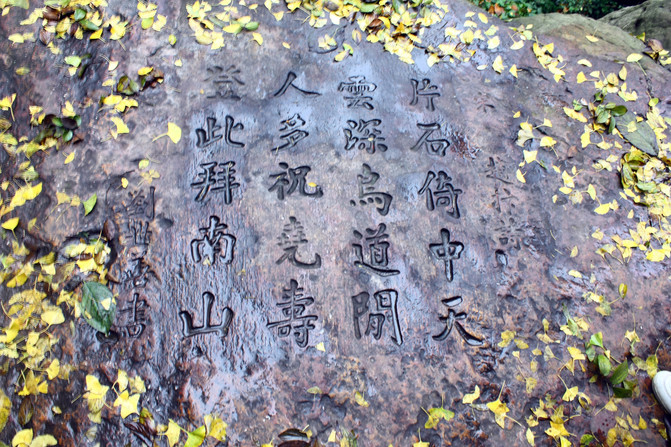 片石倚中天
雲深鳥道開
人多祝堯壽
登此拜南山